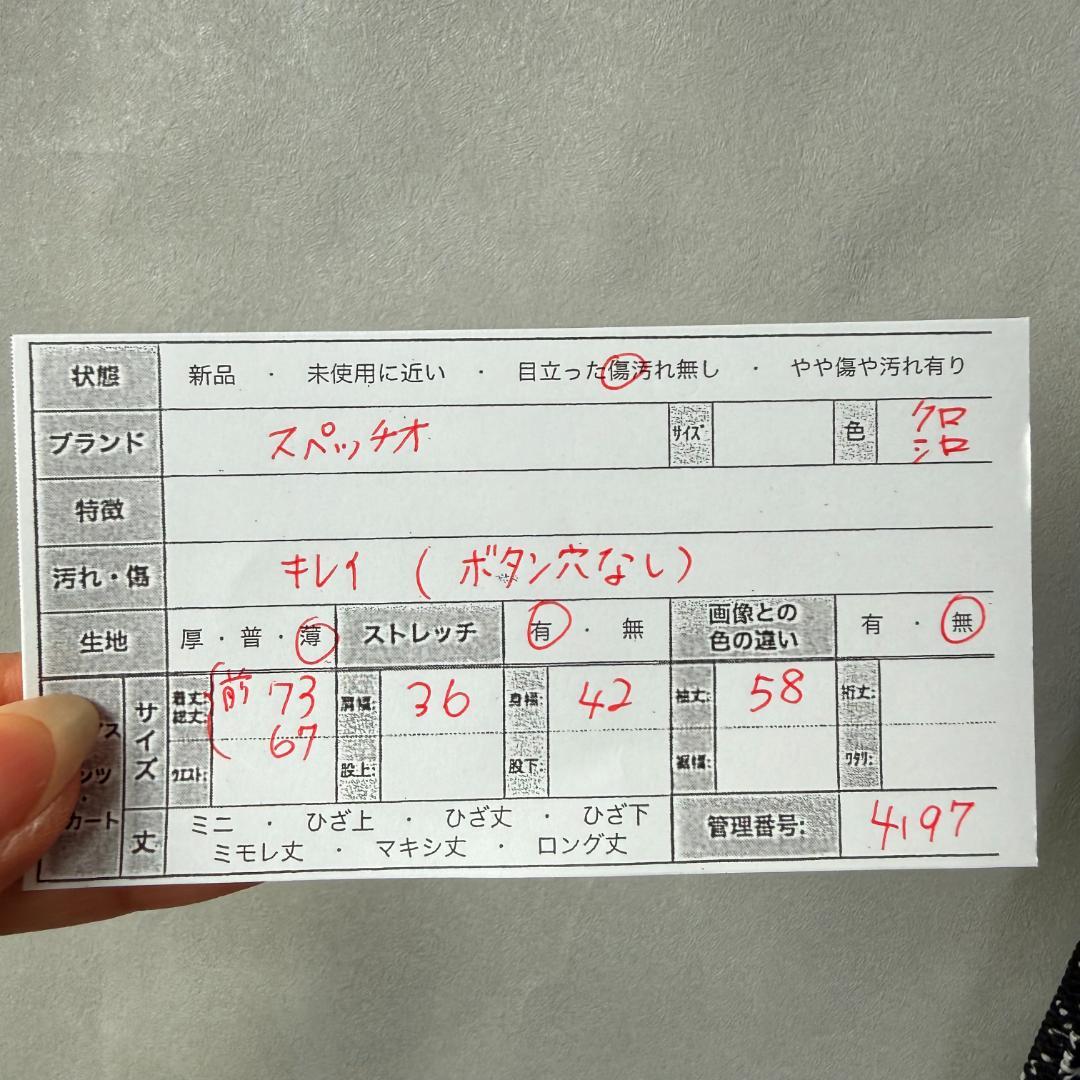 状態 新品 ・ 未使用に近い ・ 目立った傷汚れ無し ・ やや傷や汚れ有り
ブランド スペッチオ サイズ 色 クロ
シロ
特徴
汚れ・傷 キレイ (ボタン穴なし)
生地 厚・普・薄 ストレッチ 有 ・ 無 画像との
色の違い 有 ・ 無
サイズ 着丈: 前 73 肩幅: 36 身幅: 42 袖丈: 58 裄丈:
総丈: 67
ウエスト: 股上: 股下: 裾幅: ワタリ:
カート 丈 ミニ ・ ひざ上 ・ ひざ丈 ・ ひざ下
ミモレ丈 ・ マキシ丈 ・ ロング丈
管理番号: 4197